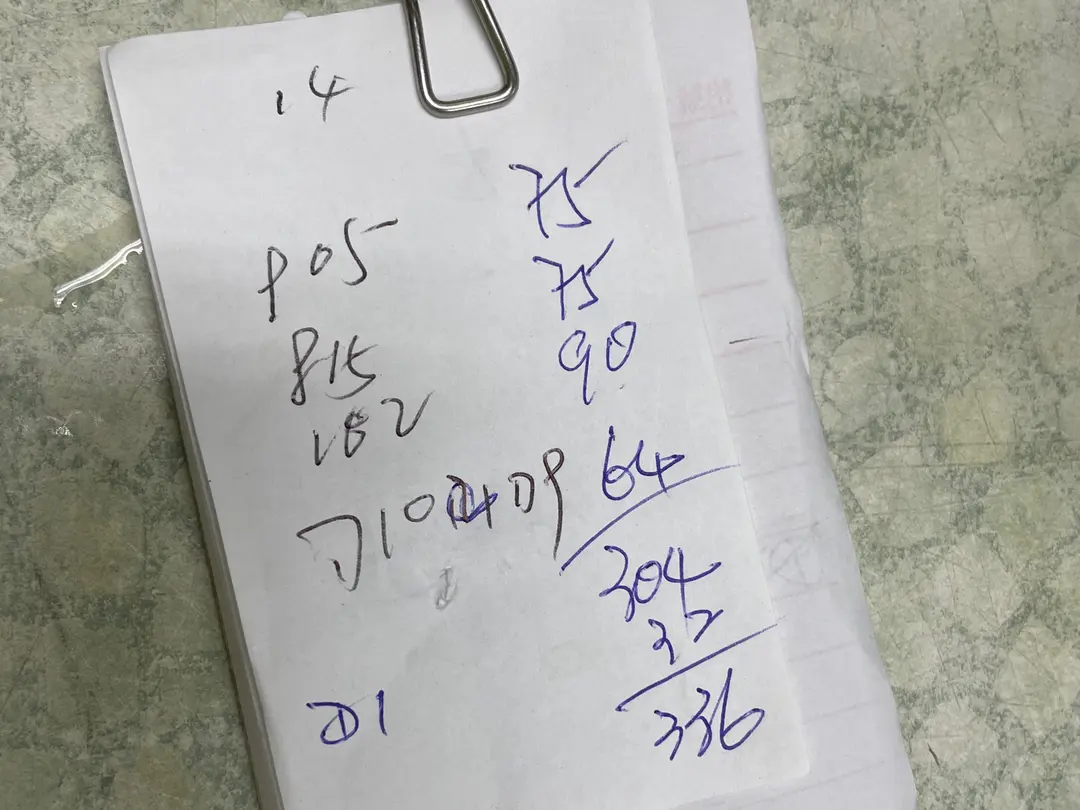 14
75
P05
75
815
90
182
64
304
32
D1
336